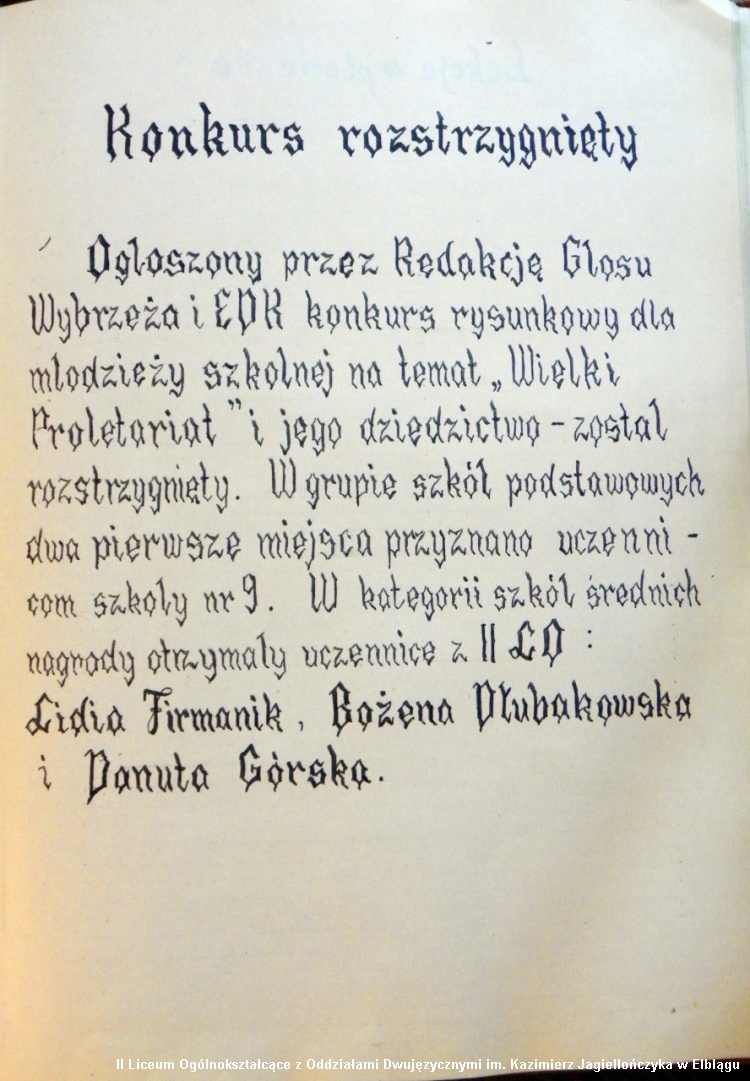 Konkurs rozstrzygnięty
Ogłoszony przez Redakcję Głosu
Wybrzeża i EDK konkurs rysunkowy dla
młodzieży szkolnej na temat „Wielki
Proletariat” i jego dziedzictwo - został
rozstrzygnięty. W grupie szkół podstawowych
dwa pierwsze miejsca przyznano uczenni -
com szkoły nr 9. W kategorii szkół średnich
nagrody otrzymały uczennice z II LO :
Lidia Firmanik, Bożena Dłubakowska
i Danuta Górska.
II Liceum Ogólnokształcące z Oddziałami Dwujęzycznymi im. Kazimierz Jagiellończyka w Elblągu